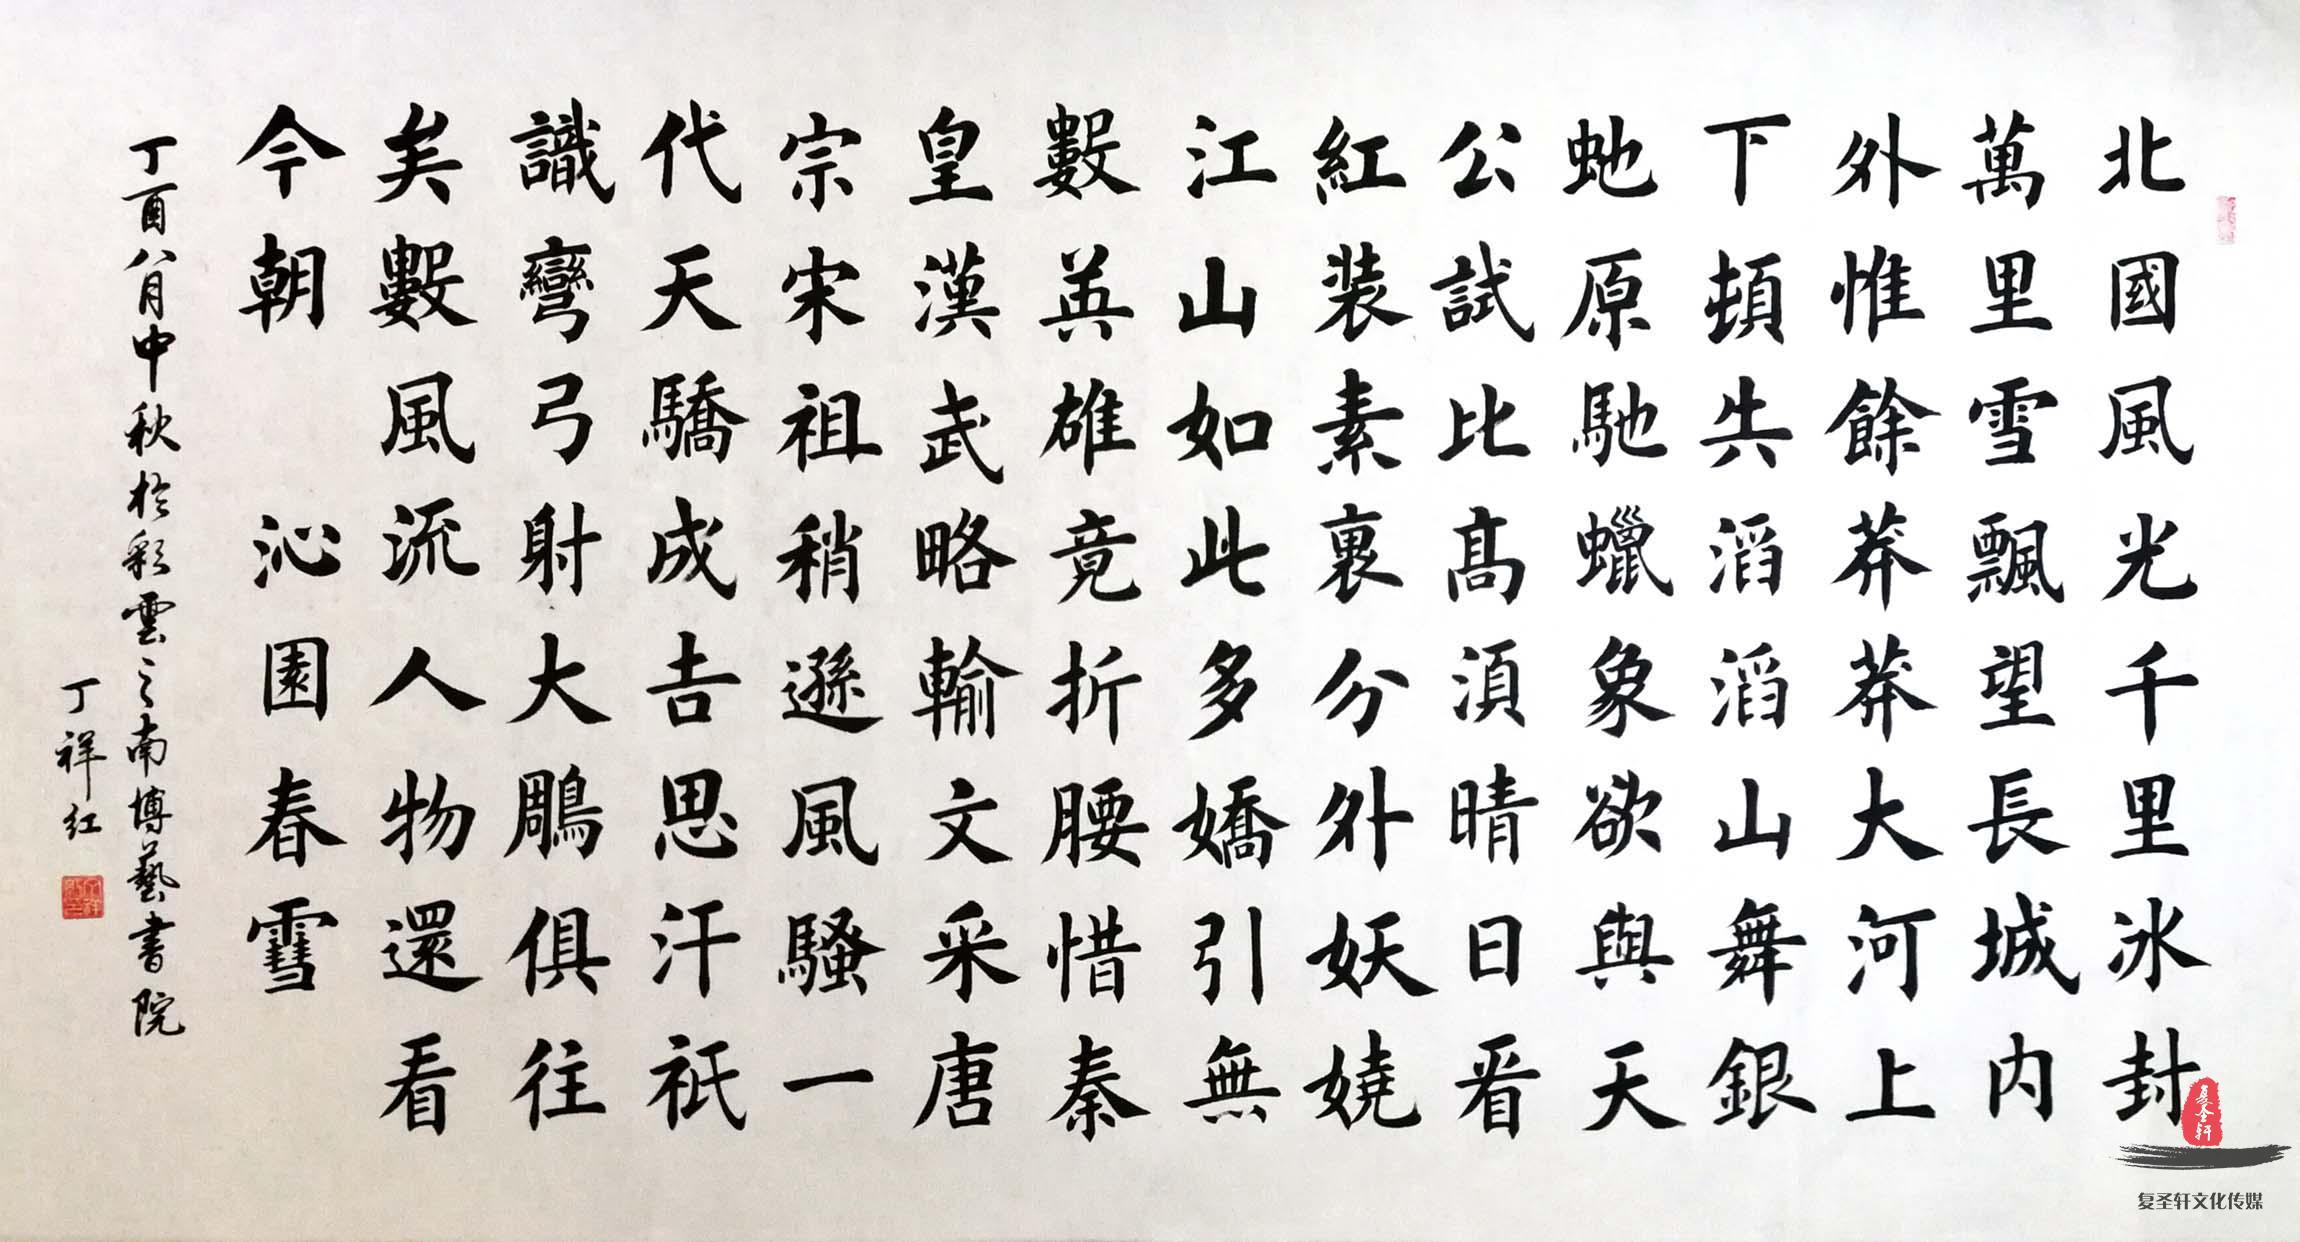 北國風光千里冰封
萬里雪飄望長城内
外惟餘莽莽大河上
下頓失滔滔山舞銀
虵原馳蠟象欲與天
公試比髙須晴日看
紅装素裹分外妖嬈
江山如此多嬌引無
數英雄竟折腰惜秦
皇漢武略輸文采唐
宗宋祖稍遜風騷一
代天驕成吉思汗祇
識彎弓射大鵰俱往
矣數風流人物還看
今朝 沁園春雪
丁酉八月中秋於彩雲之南博藝書院
丁祥红
复圣轩
复圣轩文化传媒